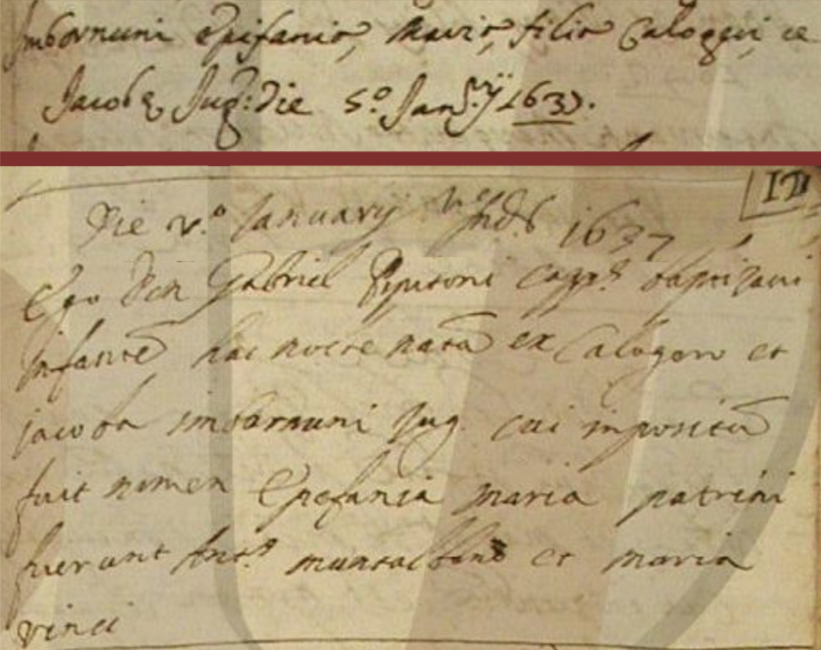 Imbornuni Epifania, Maria, filia Calogeri, et
Jacobe Jug: die 5.º Jan.ry 1637.
ID
Die v.º January Ind. 1637
Ego Don Gabriel Pipitoni capp.s baptizavi
infantē hac nocte natā ex Calogero et
jacoba imbornuni jug. cui impositū
fuit nomen Epefania maria patrini
fuerunt Ant.s muntalbano et maria
vinci